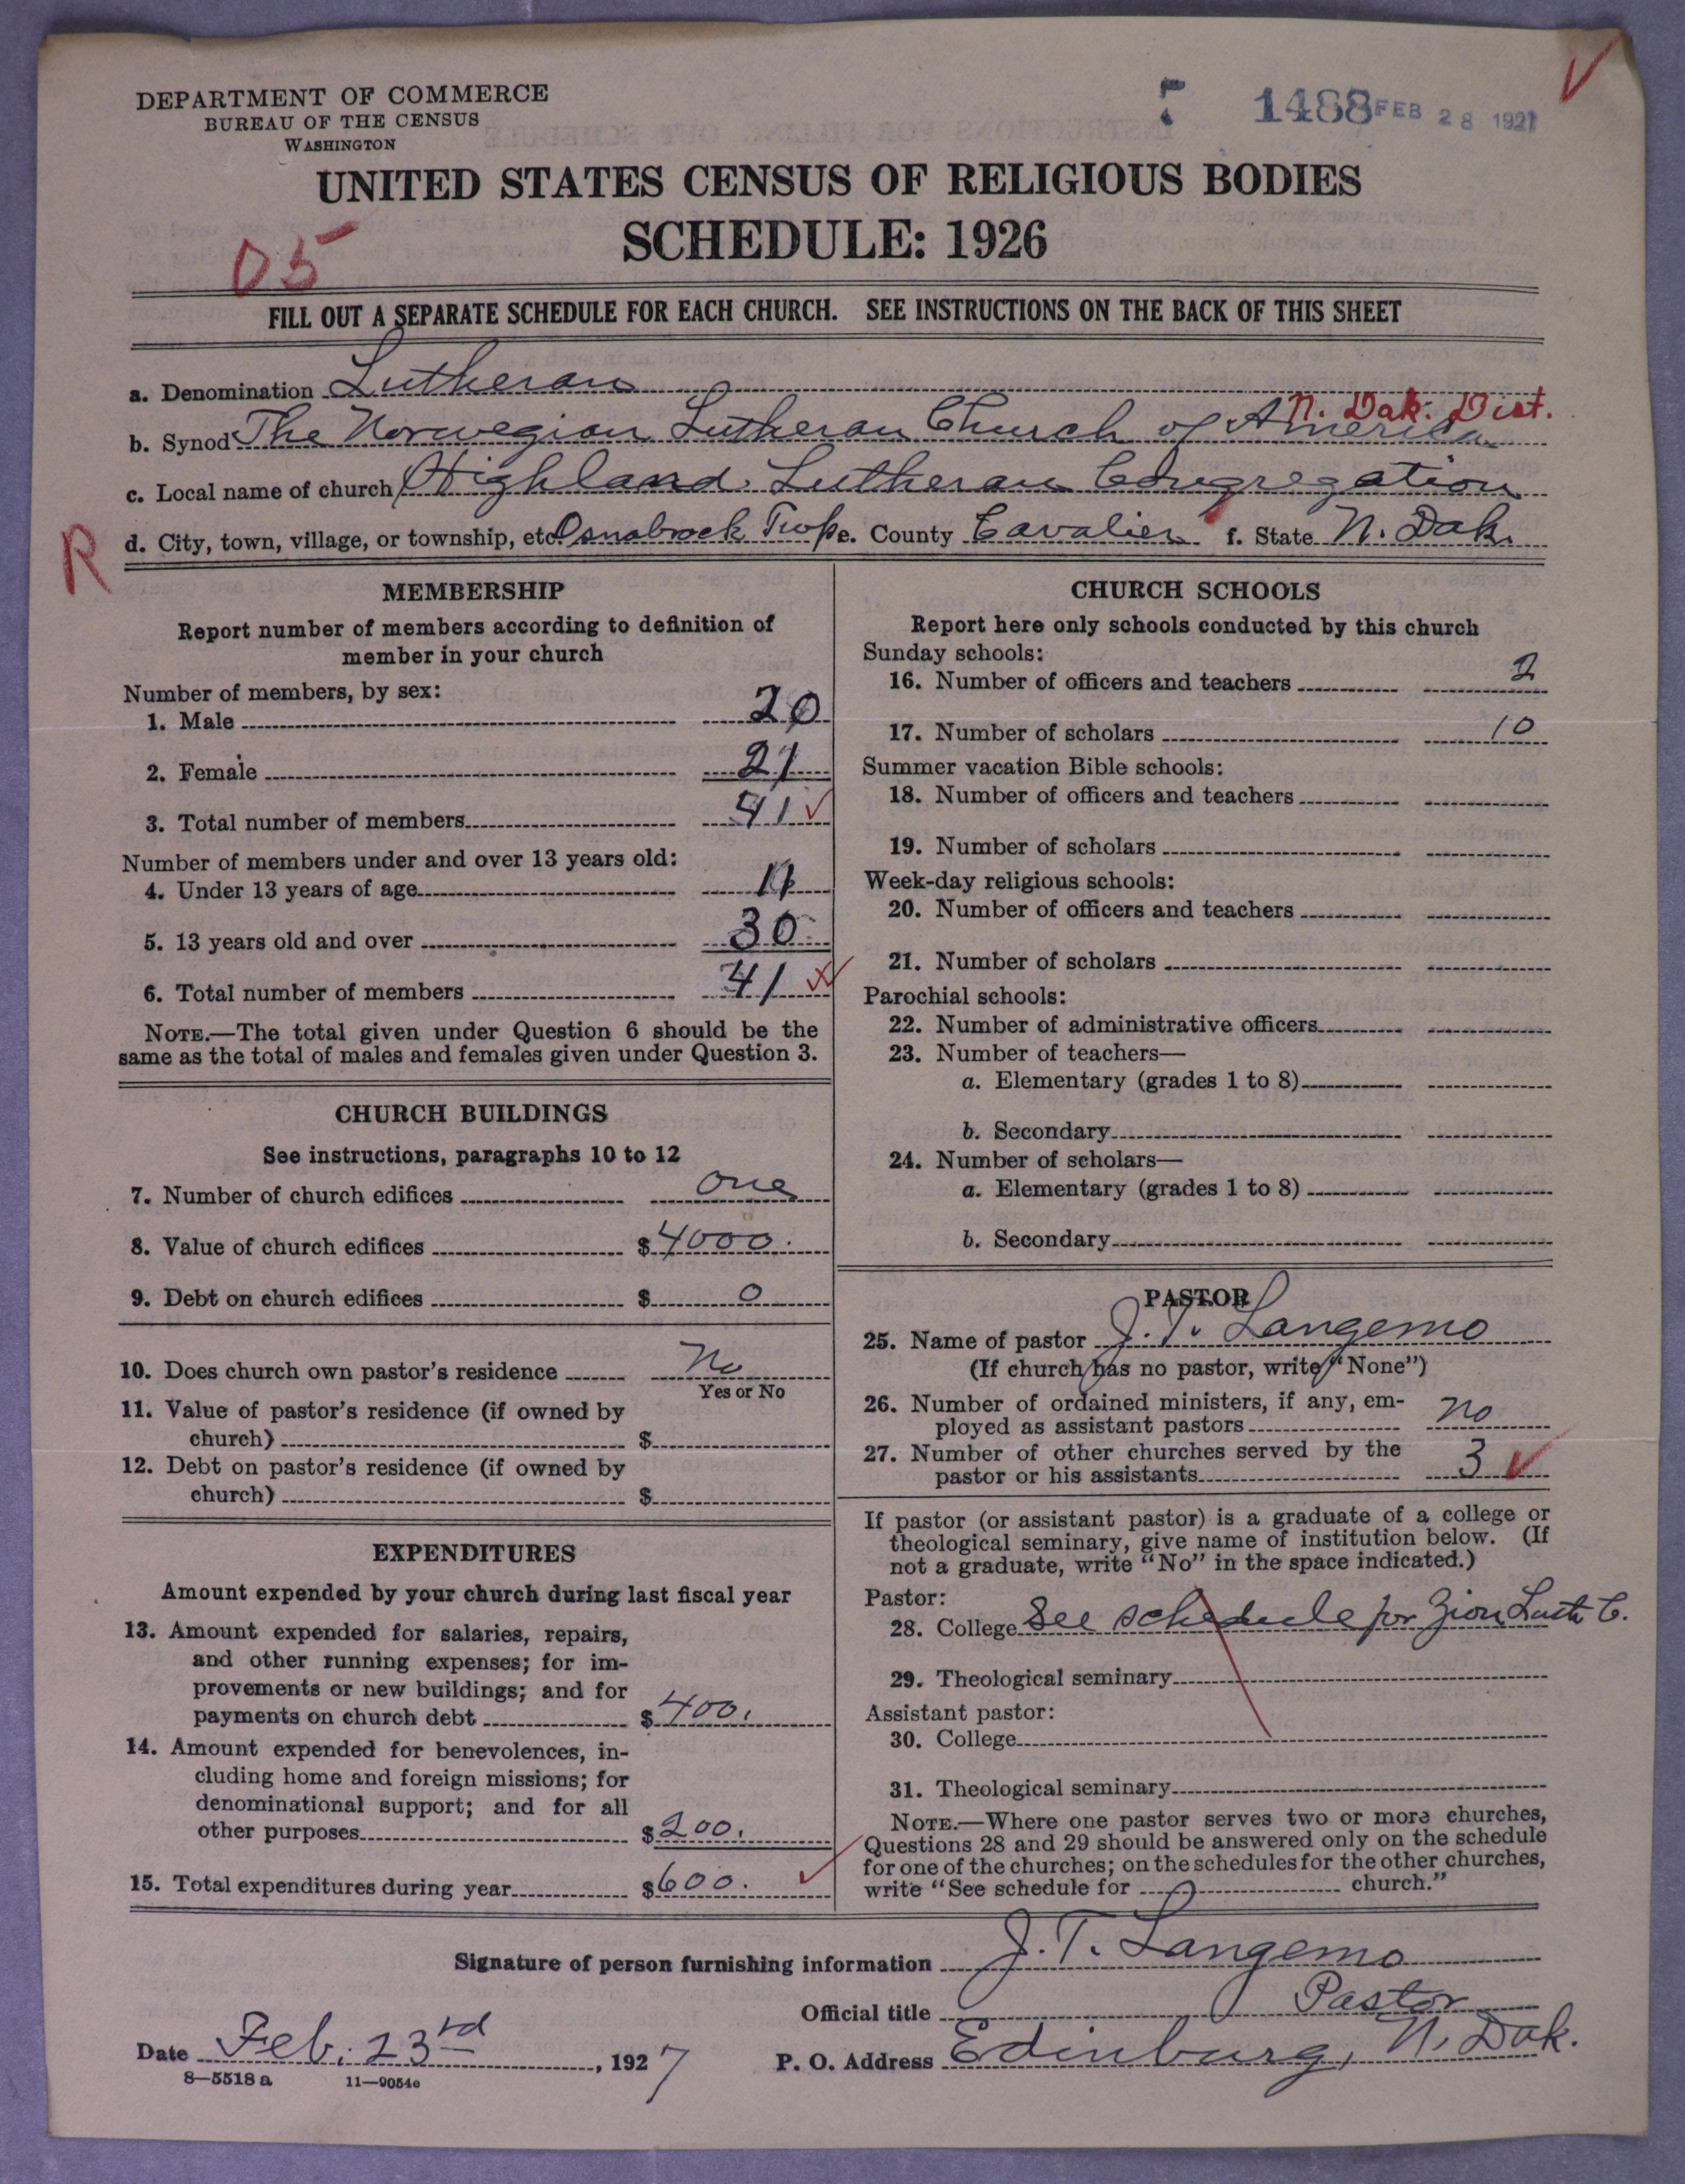 DEPARTMENT OF COMMERCE
BUREAU OF THE CENSUS
WASHINGTON
1488 FEB 28 1927
UNITED STATES CENSUS OF RELIGIOUS BODIES
SCHEDULE: 1926
05
FILL OUT A SEPARATE SCHEDULE FOR EACH CHURCH. SEE INSTRUCTIONS ON THE BACK OF THIS SHEET
a. Denomination Lutheran
N. Dak. Dist.
b. Synod The Norwegian Lutheran Church of America
c. Local name of church Highland Lutheran Congregation
R
d. City, town, village, or township, etc. Osnabrock Twp e. County Cavalier f. State N. Dak.
MEMBERSHIP
Report number of members according to definition of
member in your church
Number of members, by sex:
1. Male 20
2. Female 21
3. Total number of members 41
Number of members under and over 13 years old:
4. Under 13 years of age 11
5. 13 years old and over 30
6. Total number of members 41
NOTE.—The total given under Question 6 should be the
same as the total of males and females given under Question 3.
CHURCH BUILDINGS
See instructions, paragraphs 10 to 12
7. Number of church edifices one
8. Value of church edifices $4000.
9. Debt on church edifices $ 0
10. Does church own pastor's residence No
Yes or No
11. Value of pastor's residence (if owned by
church) $
12. Debt on pastor's residence (if owned by
church) $
EXPENDITURES
Amount expended by your church during last fiscal year
13. Amount expended for salaries, repairs,
and other running expenses; for im-
provements or new buildings; and for
payments on church debt $400.
14. Amount expended for benevolences, in-
cluding home and foreign missions; for
denominational support; and for all
other purposes $200.
15. Total expenditures during year $600.
CHURCH SCHOOLS
Report here only schools conducted by this church
Sunday schools:
16. Number of officers and teachers 2
17. Number of scholars 10
Summer vacation Bible schools:
18. Number of officers and teachers
19. Number of scholars
Week-day religious schools:
20. Number of officers and teachers
21. Number of scholars
Parochial schools:
22. Number of administrative officers
23. Number of teachers—
a. Elementary (grades 1 to 8)
b. Secondary
24. Number of scholars—
a. Elementary (grades 1 to 8)
b. Secondary
PASTOR
25. Name of pastor J. T. Langemo
(If church has no pastor, write "None")
26. Number of ordained ministers, if any, em-
ployed as assistant pastors no
27. Number of other churches served by the
pastor or his assistants 3
If pastor (or assistant pastor) is a graduate of a college or
theological seminary, give name of institution below. (If
not a graduate, write "No" in the space indicated.)
Pastor:
28. College See schedule for Zion Luth C.
29. Theological seminary
Assistant pastor:
30. College
31. Theological seminary
NOTE.—Where one pastor serves two or more churches,
Questions 28 and 29 should be answered only on the schedule
for one of the churches; on the schedules for the other churches,
write "See schedule for church."
Signature of person furnishing information J. T. Langemo
Official title Pastor
Date Feb. 23rd, 1927
P. O. Address Edinburg, N. Dak.
8—5518 a 11—9054c